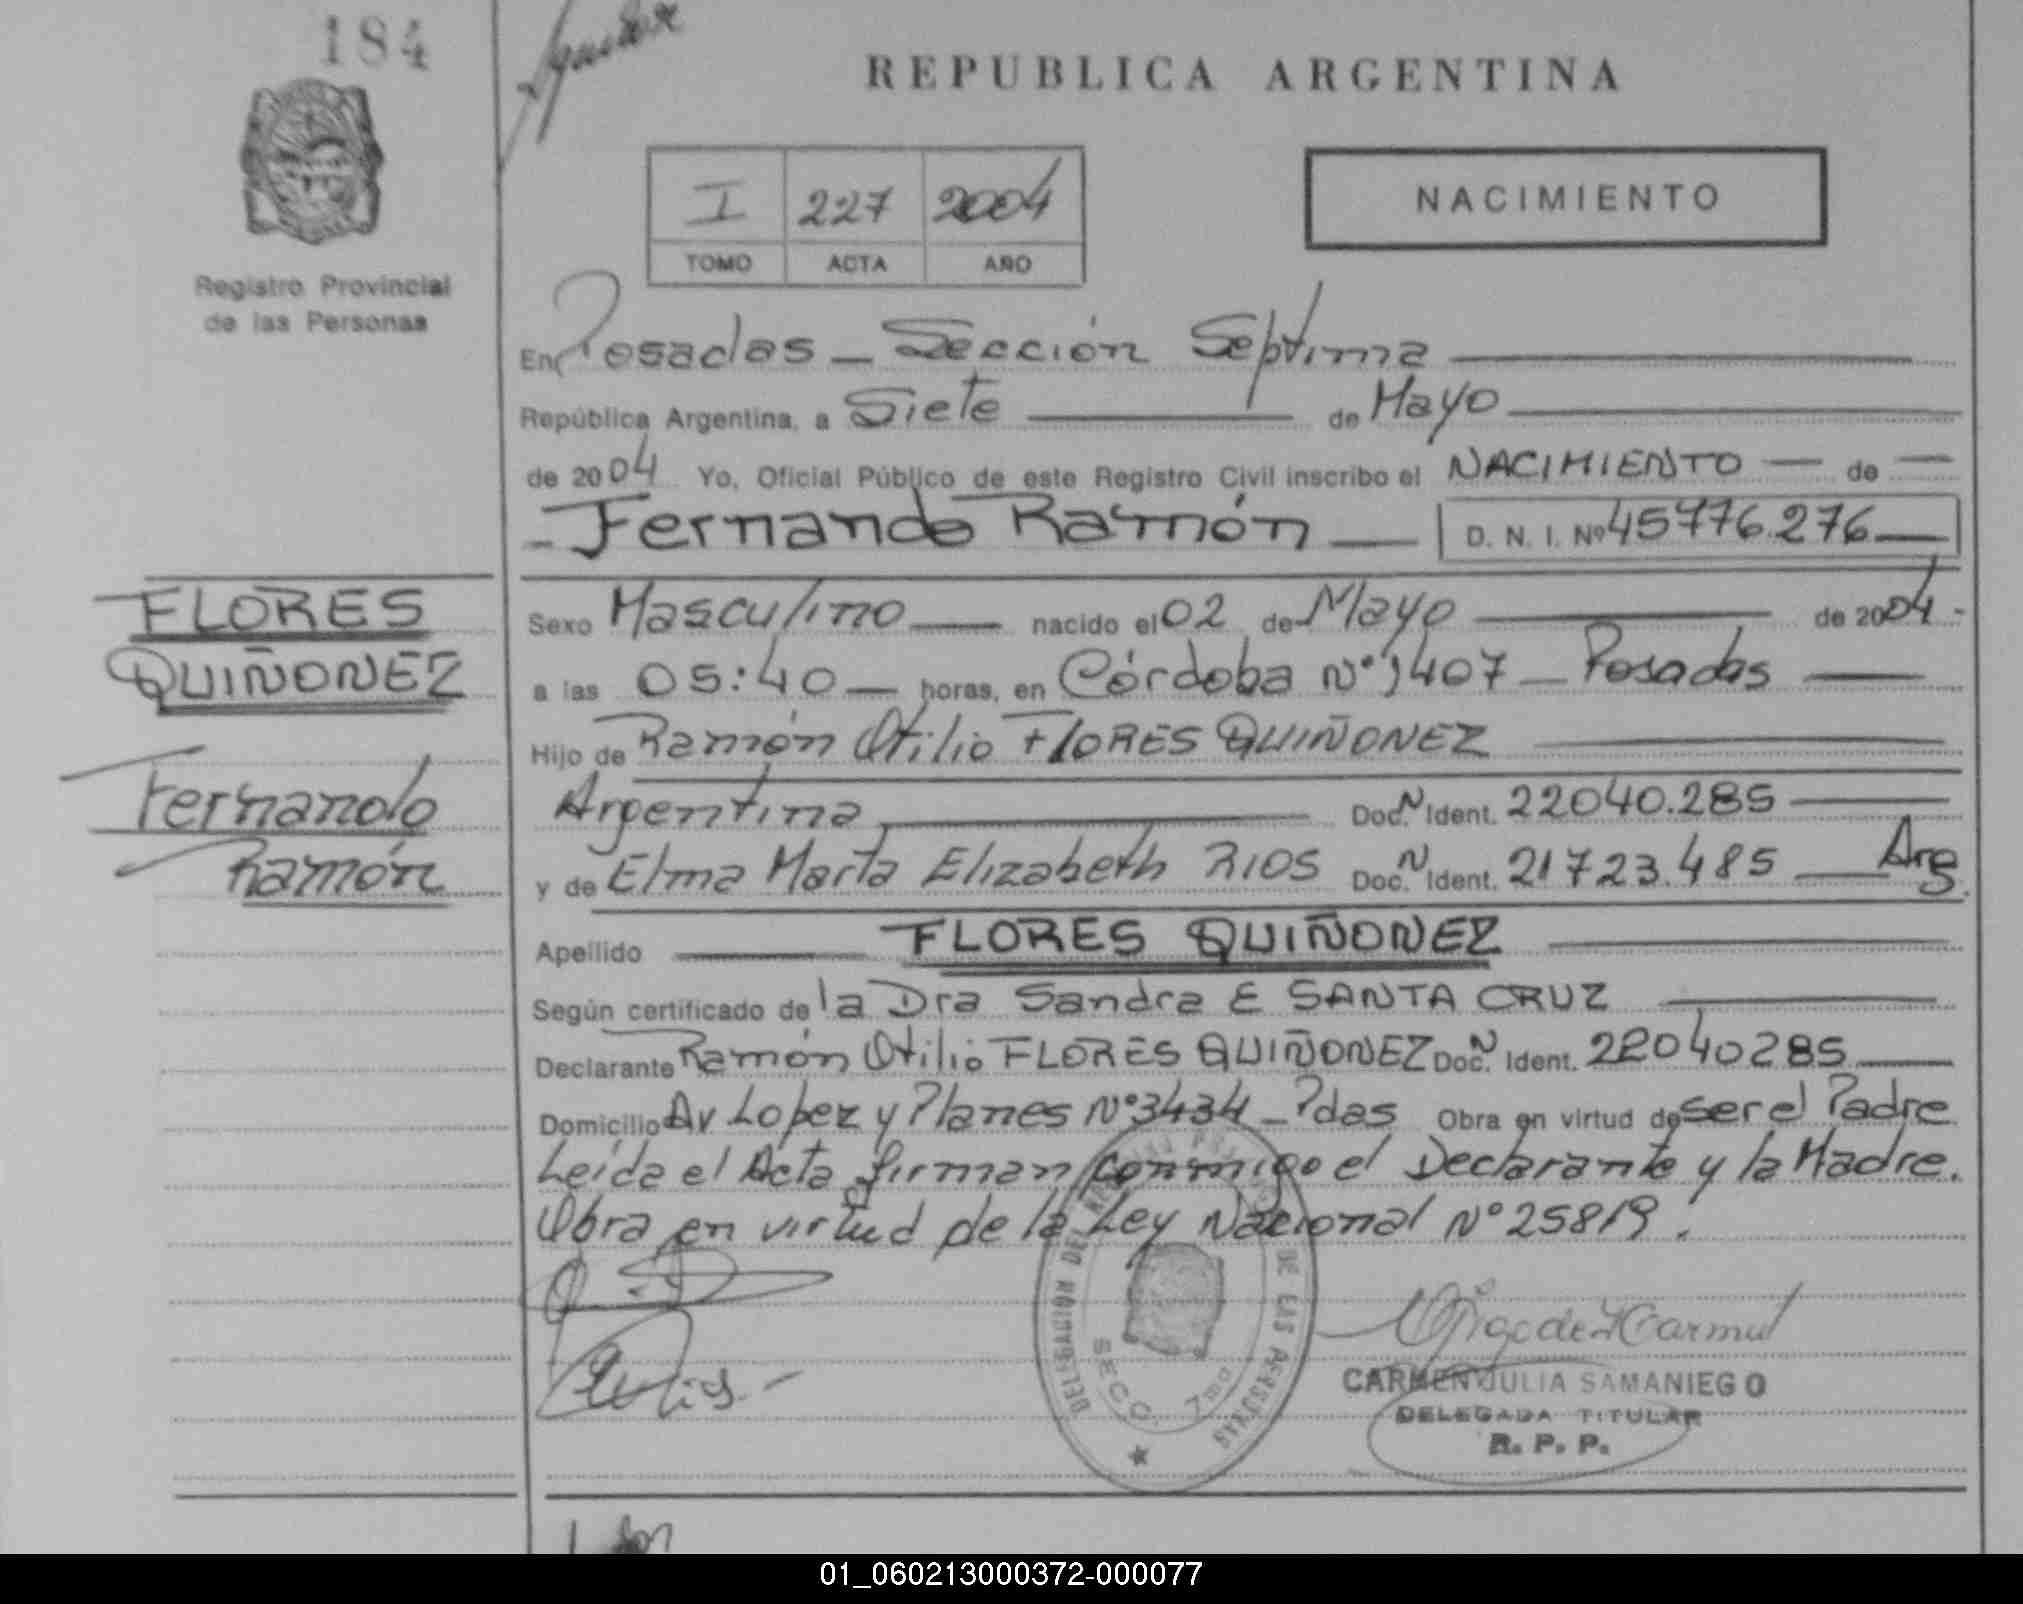 184
REPUBLICA ARGENTINA
I 227 2004
TOMO ACTA AÑO
NACIMIENTO
Registro Provincial
de las Personas
En Posadas - Sección Septima
República Argentina, a Siete de Mayo
de 2004 Yo, Oficial Público de este Registro Civil inscribo el NACIMIENTO de
- Fernando Ramón D. N. I. Nº 45776.276
FLORES
QUIÑONEZ
Fernando
Ramón
Sexo Masculino nacido el 02 de Mayo de 2004.-
a las 05:40 horas, en Córdoba Nº 1407 - Posadas
Hijo de Ramón Otilio FLORES QUIÑONEZ
Argentina Doc. N. Ident. 22040.285
y de Elma Marta Elizabeth RIOS Doc. N. Ident. 21723.485 Arg.
Apellido FLORES QUIÑONEZ
Según certificado de la Dra Sandra E SANTA CRUZ
Declarante Ramón Otilio FLORES QUIÑONEZ Doc. N. Ident. 22040285
Domicilio Av Lopez y Planes Nº 3434 - Pdas Obra en virtud de ser el Padre
Leída el Acta firman conmigo el Declarante y la Madre.
Obra en virtud de la Ley Nacional Nº 25819.
DELEGACION DEL DE LAS PERSONAS
SECC. 7ma
CARMEN JULIA SAMANIEGO
DELEGADA TITULAR
R. P. P.
01_060213000372-000077